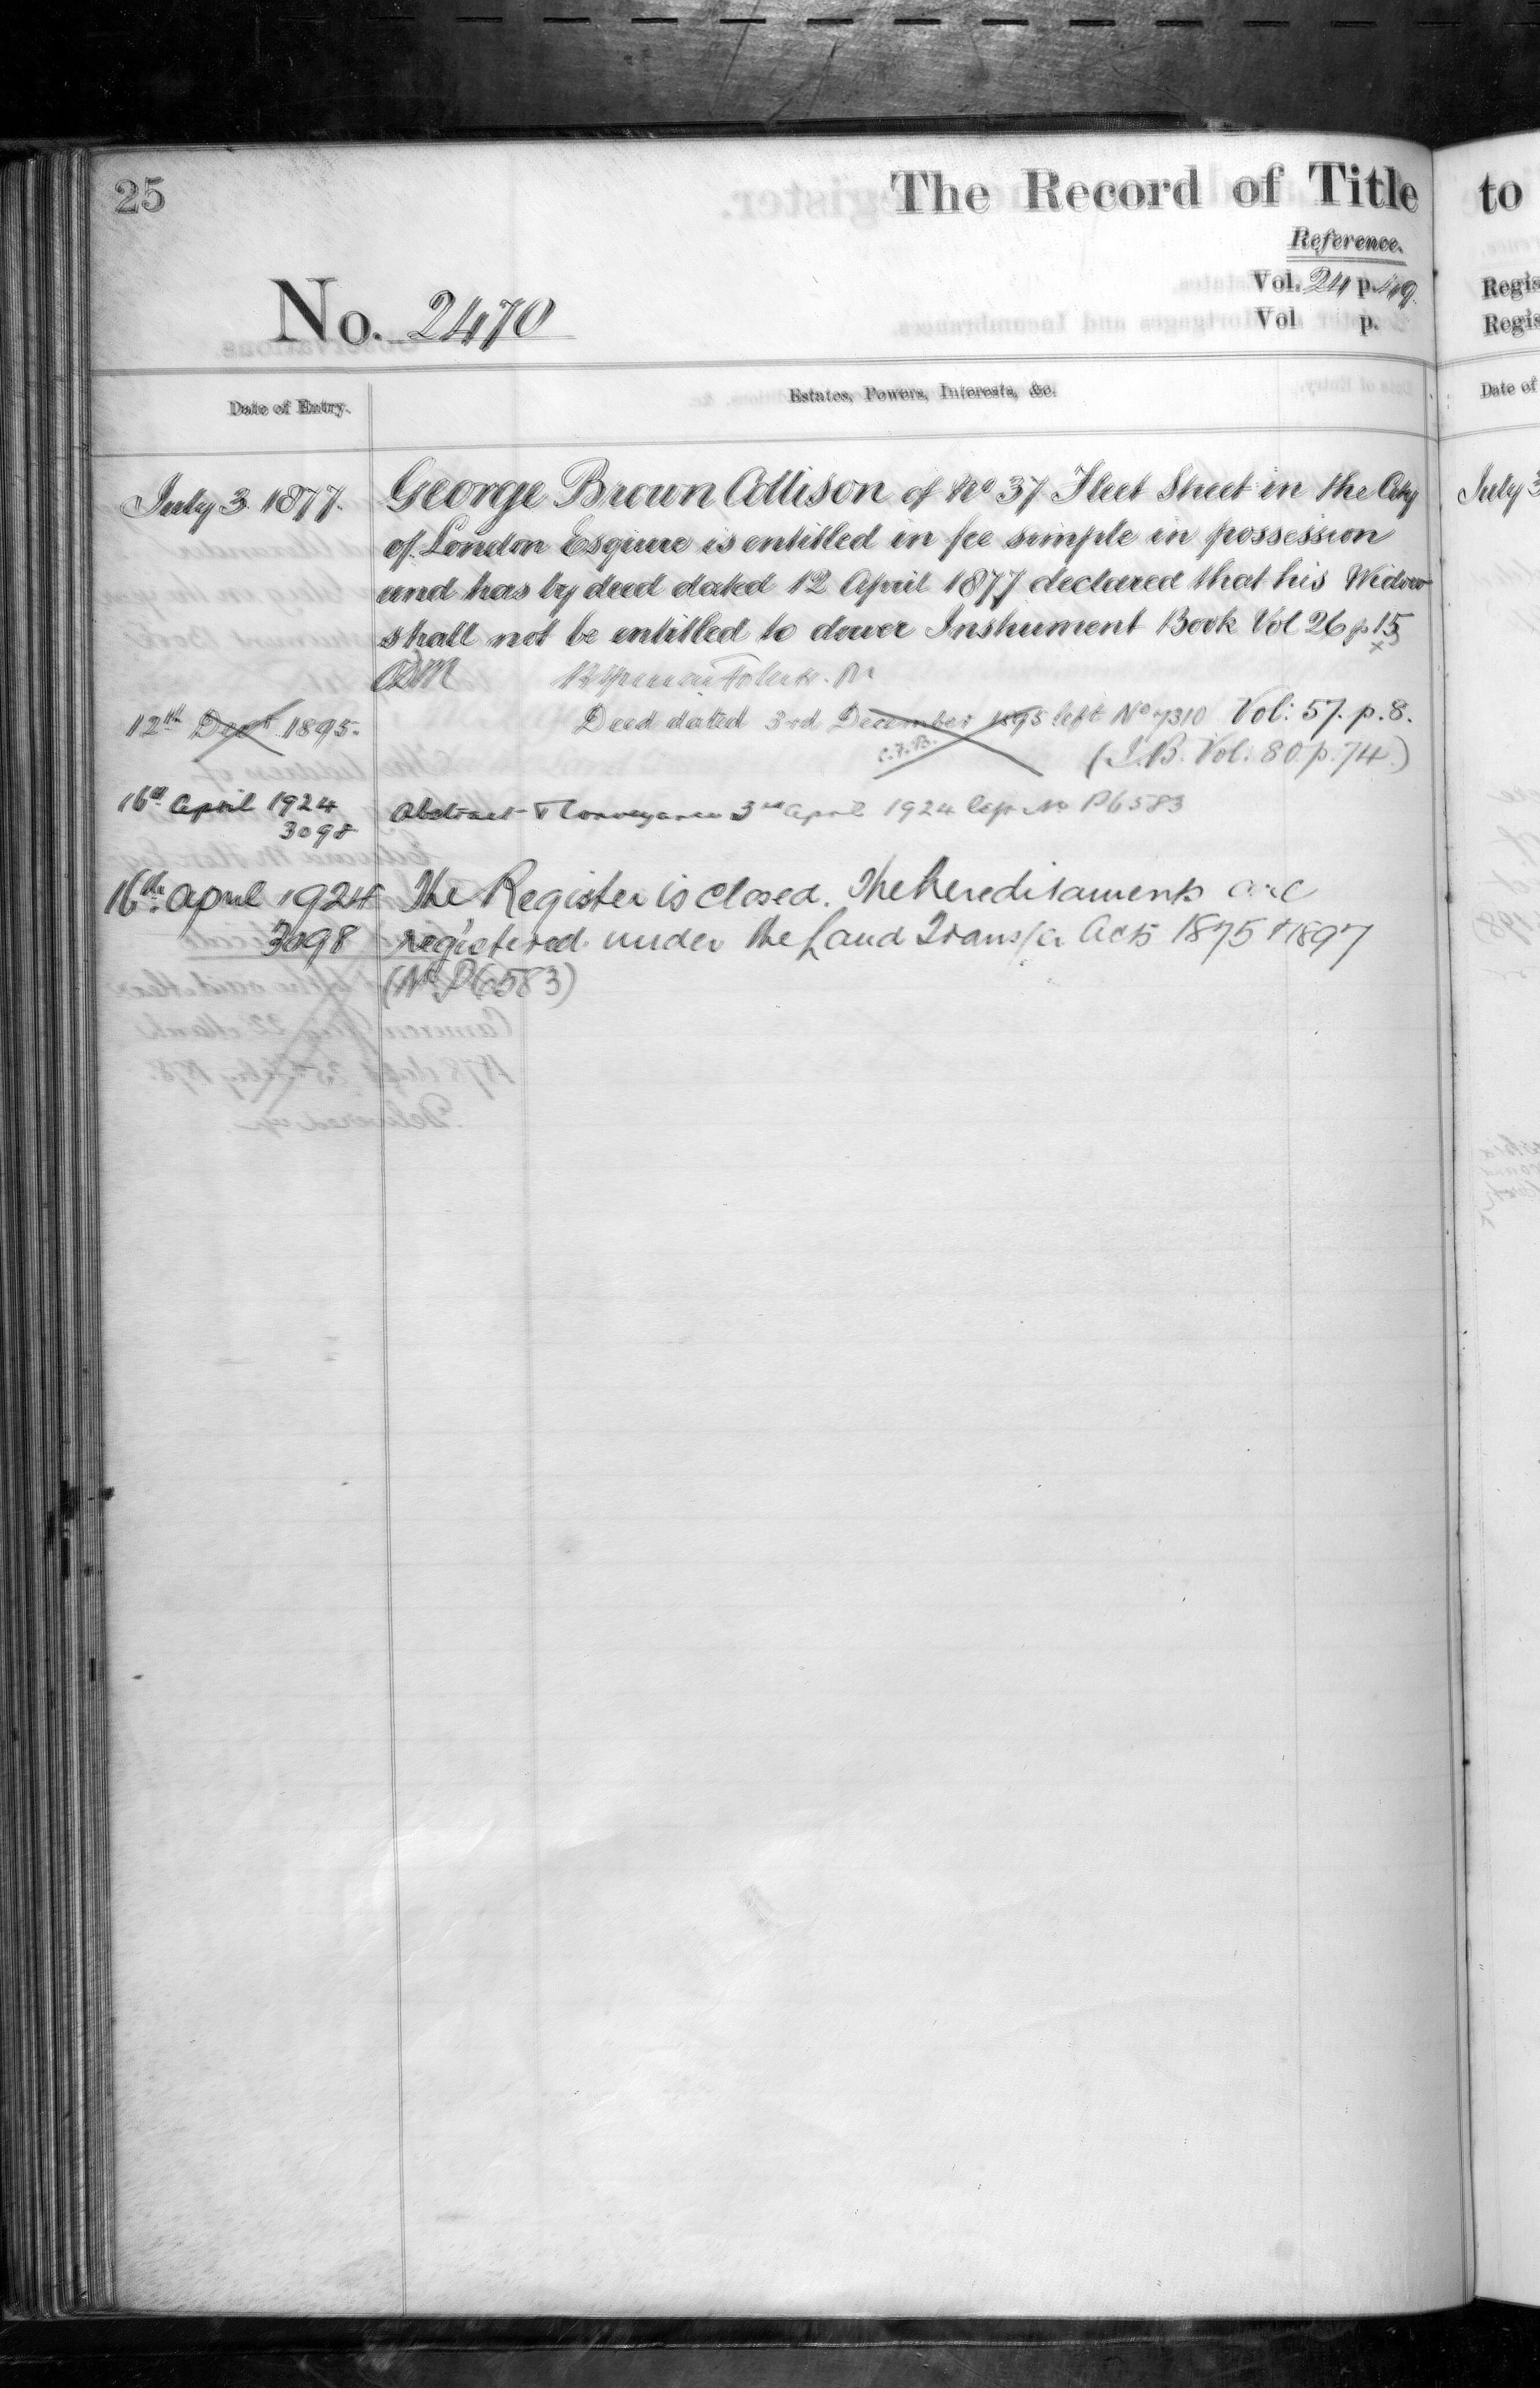 25
The Record of Title
to
Reference.
Vol. 24 p.
Regis
No. 2470
Vol p.
Regis
Date of Entry.
Estates, Powers, Interests, &c.
Date of
July 3. 1877.
George Brown Allison of No 37 Fleet Street in the City
July 3
of London Esquire is entitled in fee simple in possession
and has by deed dated 12 April 1877 declared that his Widow
shall not be entitled to dower Instrument Book Vol 26 p 15
12th Decr 1895.
Deed dated 3rd December 1895 left No 7310 Vol: 57. p. 8.
C.F.B.
(I.B. Vol: 80 p. 74.)
16th April 1924
Abstract & Conveyance 3rd April 1924 No P6583
3098
16th April 1924
The Register is closed. The hereditaments are
3098
registered under the Land Transfer Acts 1875 & 1897
(No P6583)